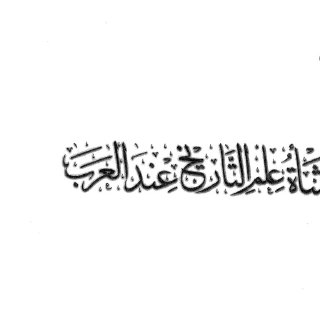 نشأة علم التاريخ عند العرب